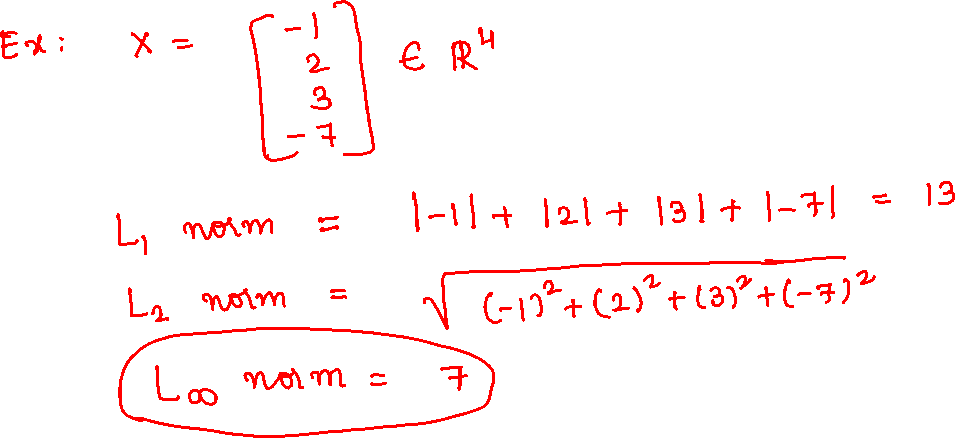 Ex: X = [-1 2 3 -7] ∈ ℝ⁴
L₁ norm = |-1| + |2| + |3| + |-7| = 13
L₂ norm = √((-1)² + (2)² + (3)² + (-7)²)
L∞ norm = 7